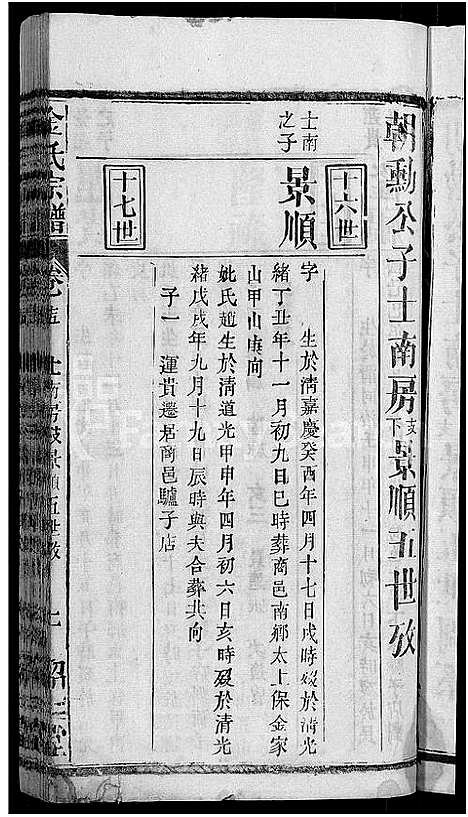 朝勳公子士南房支下景順五世攷
十六世
士南之子
景順
字 生於清嘉慶癸酉年四月十七日戌時歿於清光
緒丁丑年十一月初九日巳時葬商邑南鄉太上保金家
山甲山庚向
妣氏趙生於清道光甲申年四月初六日亥時歿於清光
緒戊戌年九月十九日辰時與夫合葬共向
子一 運貴遷居商邑驢子店
十七世
金氏宗譜
卷 士南房支景順五世攷
七